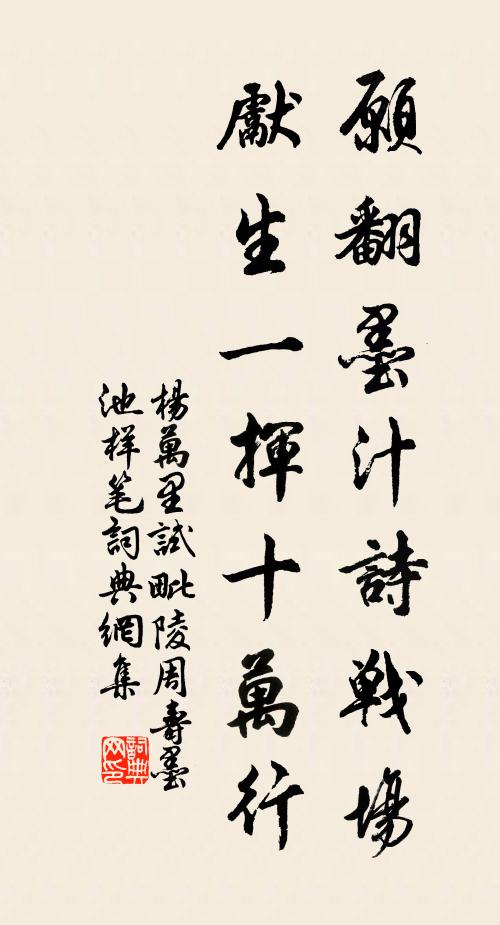 願翻墨汁詩戰場
獻生一揮十萬行
楊萬里試毗陵周壽墨
池样笔詞典網集
詞典網印